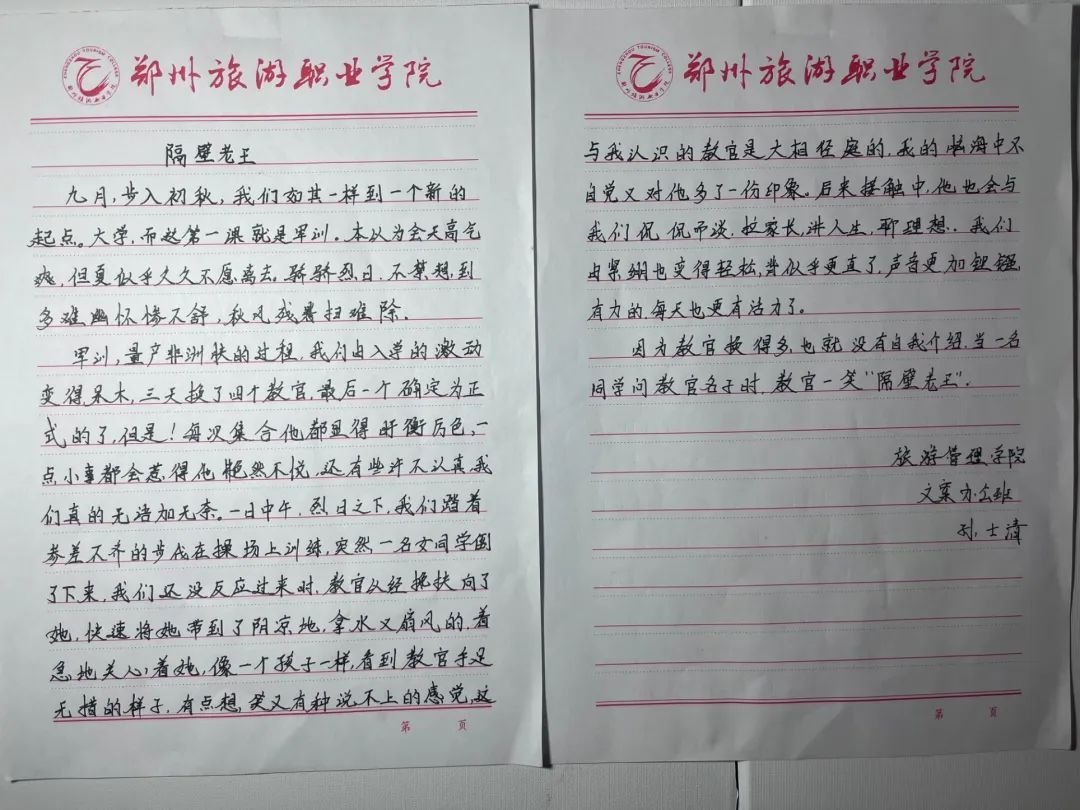 郑州旅游职业学院
隔壁老王
九月,步入初秋,我们如其一样到一个新的
起点。大学,而这第一课就是军训。本以为会天高气
爽,但夏似乎久久不愿离去。骄骄烈日,不禁想到
多难幽怀惨不舒,秋风残暑扫难除.
军训,量产非洲人的过程,我们由入学的激动
变得呆木,三天换了四个教官,最后一个确定为正
式的了,但是!每次集合他都显得盱衡厉色,一
点小事都会惹得他艴然不悦,还有些许不认真,我
们真的无语加无奈。一日中午,烈日之下,我们踏着
参差不齐的步伐在操场上训练,突然一名女同学倒
了下来,我们还没反应过来时,教官已经搀扶向了
她,快速将她带到了阴凉地,拿水又扇风的,着
急地关心着她,像一个孩子一样,看到教官手足
无措的样子,有点想笑又有种说不上的感觉,这
第 页
郑州旅游职业学院
与我认识的教官是大相径庭的,我的脑海中不
自觉又对他多了一份印象。后来接触中,他也会与
我们侃侃而谈,拉家长,讲人生,聊理想.我们
由紧绷也变得轻松,背似乎更直了,声音更加铿锵
有力的,每天也更有活力了。
因为教官换得多,也就没有自我介绍,当一名
同学问教官名子时,教官一笑"隔壁老王".
旅游管理学院
文案办公班
孙士清
第 页